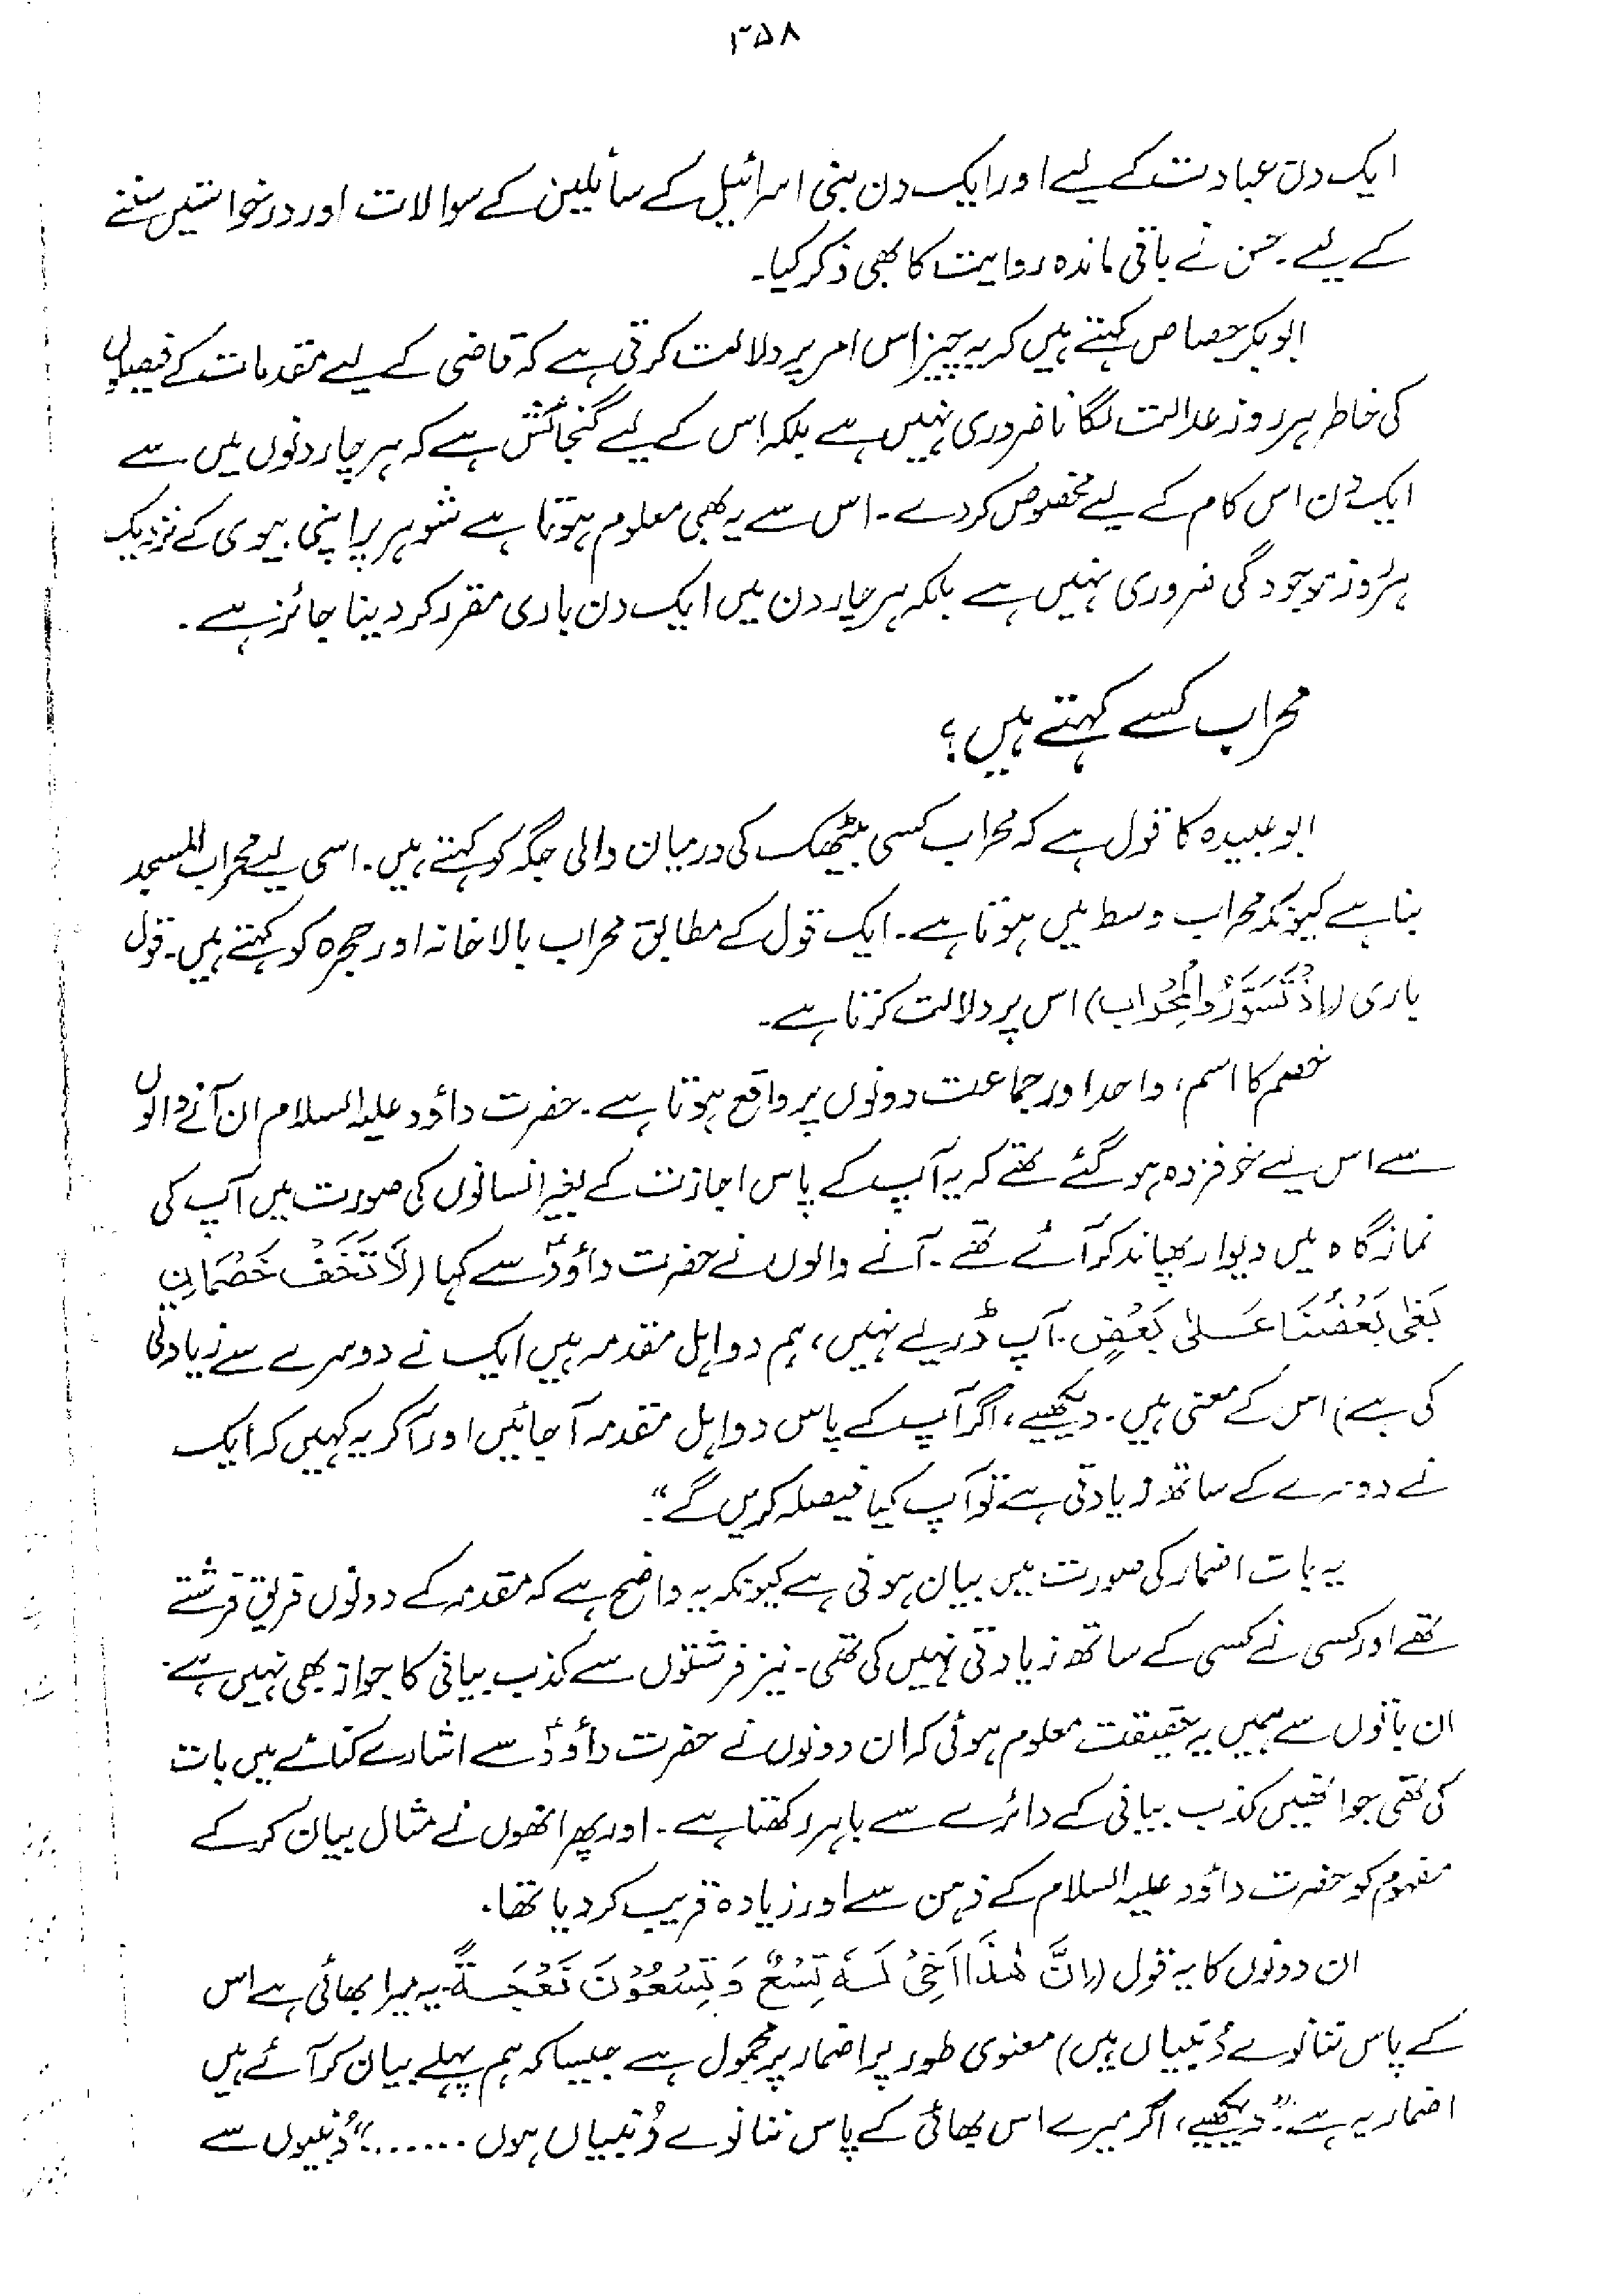 ۳۵۸
ایک دن عبادت کے لیے اور ایک دن بنی اسرائیل کے سائلین کے سوالات اور درخواستیں سننے
کے لیے۔ حسن نے باقی ماندہ روایت کا بھی ذکر کیا۔
ابوبکر جصاص کہتے ہیں کہ یہ چیز اس امر پر دلالت کرتی ہے کہ قاضی کے لیے مقدمات کے فیصلوں
کی خاطر ہر روز عدالت لگانا ضروری نہیں ہے بلکہ اس کے لیے گنجائش ہے کہ ہر چار دنوں میں سے
ایک دن اس کام کے لیے مخصوص کر دے۔ اس سے یہ بھی معلوم ہوتا ہے شوہر پر اپنی بیوی کے نزدیک
ہر روز موجودگی ضروری نہیں ہے بلکہ ہر چار دن میں ایک دن باری مقرر کر دینا جائز ہے۔
محراب کسے کہتے ہیں؟
ابو عبیدہ کا قول ہے کہ محراب کسی بیٹھک کی درمیان والی جگہ کو کہتے ہیں۔ اسی لیے محراب المسجد
بنا ہے کیونکہ محراب وسط میں ہوتا ہے۔ ایک قول کے مطابق محراب بالاخانہ اور حجرہ کو کہتے ہیں۔ قول
باری (اِذْ تَسَوَّرُوا الْمِحْرَاب) اس پر دلالت کرتا ہے۔
خصم کا اسم، واحد اور جماعت دونوں پر واقع ہوتا ہے۔ حضرت داؤد علیہ السلام ان آنے والوں
سے اس لیے خوفزدہ ہو گئے تھے کہ یہ آپ کے پاس اجازت کے بغیر انسانوں کی صورت میں آپ کی
نماز گاہ میں دیوار پھاند کر آئے تھے۔ آنے والوں نے حضرت داؤدؑ سے کہا (لَا تَخَفْ خَصْمَانِ
بَغٰی بَعْضُنَا عَلٰی بَعْضٍ۔ آپ ڈریے نہیں، ہم دو اہل مقدمہ ہیں ایک نے دوسرے سے زیادتی
کی ہے) اس کے معنی ہیں۔ دیکھیے، اگر آپ کے پاس دو اہل مقدمہ آجائیں اور آکر یہ کہیں کہ ایک
نے دوسرے کے ساتھ زیادتی ہے تو آپ کیا فیصلہ کریں گے۔“
یہ بات اضمار کی صورت میں بیان ہوئی ہے کیونکہ یہ واضح ہے کہ مقدمہ کے دونوں فریق فرشتے
تھے اور کسی نے کسی کے ساتھ زیادتی نہیں کی تھی۔ نیز فرشتوں سے کذب بیانی کا جواز بھی نہیں ہے۔
ان باتوں سے ہمیں یہ حقیقت معلوم ہوئی کہ ان دونوں نے حضرت داؤدؑ سے اشارے کنائے میں بات
کی تھی جو انھیں کذب بیانی کے دائرے سے باہر رکھتا ہے۔ اور پھر انھوں نے مثال بیان کر کے
مفہوم کو حضرت داؤد علیہ السلام کے ذہن سے اور زیادہ قریب کر دیا تھا۔
ان دونوں کا یہ قول (اِنَّ هٰذَا اَخِیْ لَهٗ تِسْعٌ وَّتِسْعُوْنَ نَعْجَةً۔ یہ میرا بھائی ہے اس
کے پاس ننانوے دُنبیاں ہیں) معنوی طور پر اضمار پر محمول ہے جیسا کہ ہم پہلے بیان کر آئے ہیں
اضمار یہ ہے: ”دیکھیے، اگر میرے اس بھائی کے پاس ننانوے دُنبیاں ہوں ......“ دُنبیوں سے